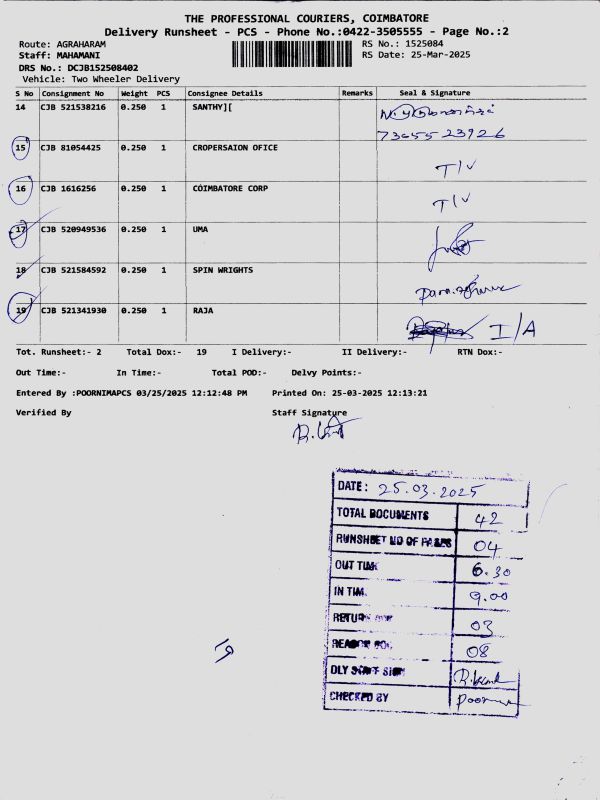 THE PROFESSIONAL COURIERS, COIMBATORE
Delivery Runsheet - PCS - Phone No.:0422-3505555 - Page No.:2
Route: AGRAHARAM RS No.: 1525084
Staff: MAHAMANI RS Date: 25-Mar-2025
DRS No.: DCJB152508402
Vehicle: Two Wheeler Delivery
S No Consignment No Weight PCS Consignee Details Remarks Seal & Signature
14 CJB 521538216 0.250 1 SANTHY][
73655 23926
15 CJB 81054425 0.250 1 CROPERSAION OFICE T/V
16 CJB 1616256 0.250 1 COIMBATORE CORP T/V
17 CJB 520949536 0.250 1 UMA
18 CJB 521584592 0.250 1 SPIN WRIGHTS
19 CJB 521341930 0.250 1 RAJA I/A
Tot. Runsheet:- 2 Total Dox:- 19 I Delivery:- II Delivery:- RTN Dox:-
Out Time:- In Time:- Total POD:- Delvy Points:-
Entered By :POORNIMAPCS 03/25/2025 12:12:48 PM Printed On: 25-03-2025 12:13:21
Verified By Staff Signature
DATE: 25.03.2025
TOTAL DOCUMENTS 42
RUNSHEET NO OF PAGES 04
OUT TIM 6.30
IN TIM. 9.00
RETURN 03
REASON 08
DLY STAFF SIGN
CHECKED BY